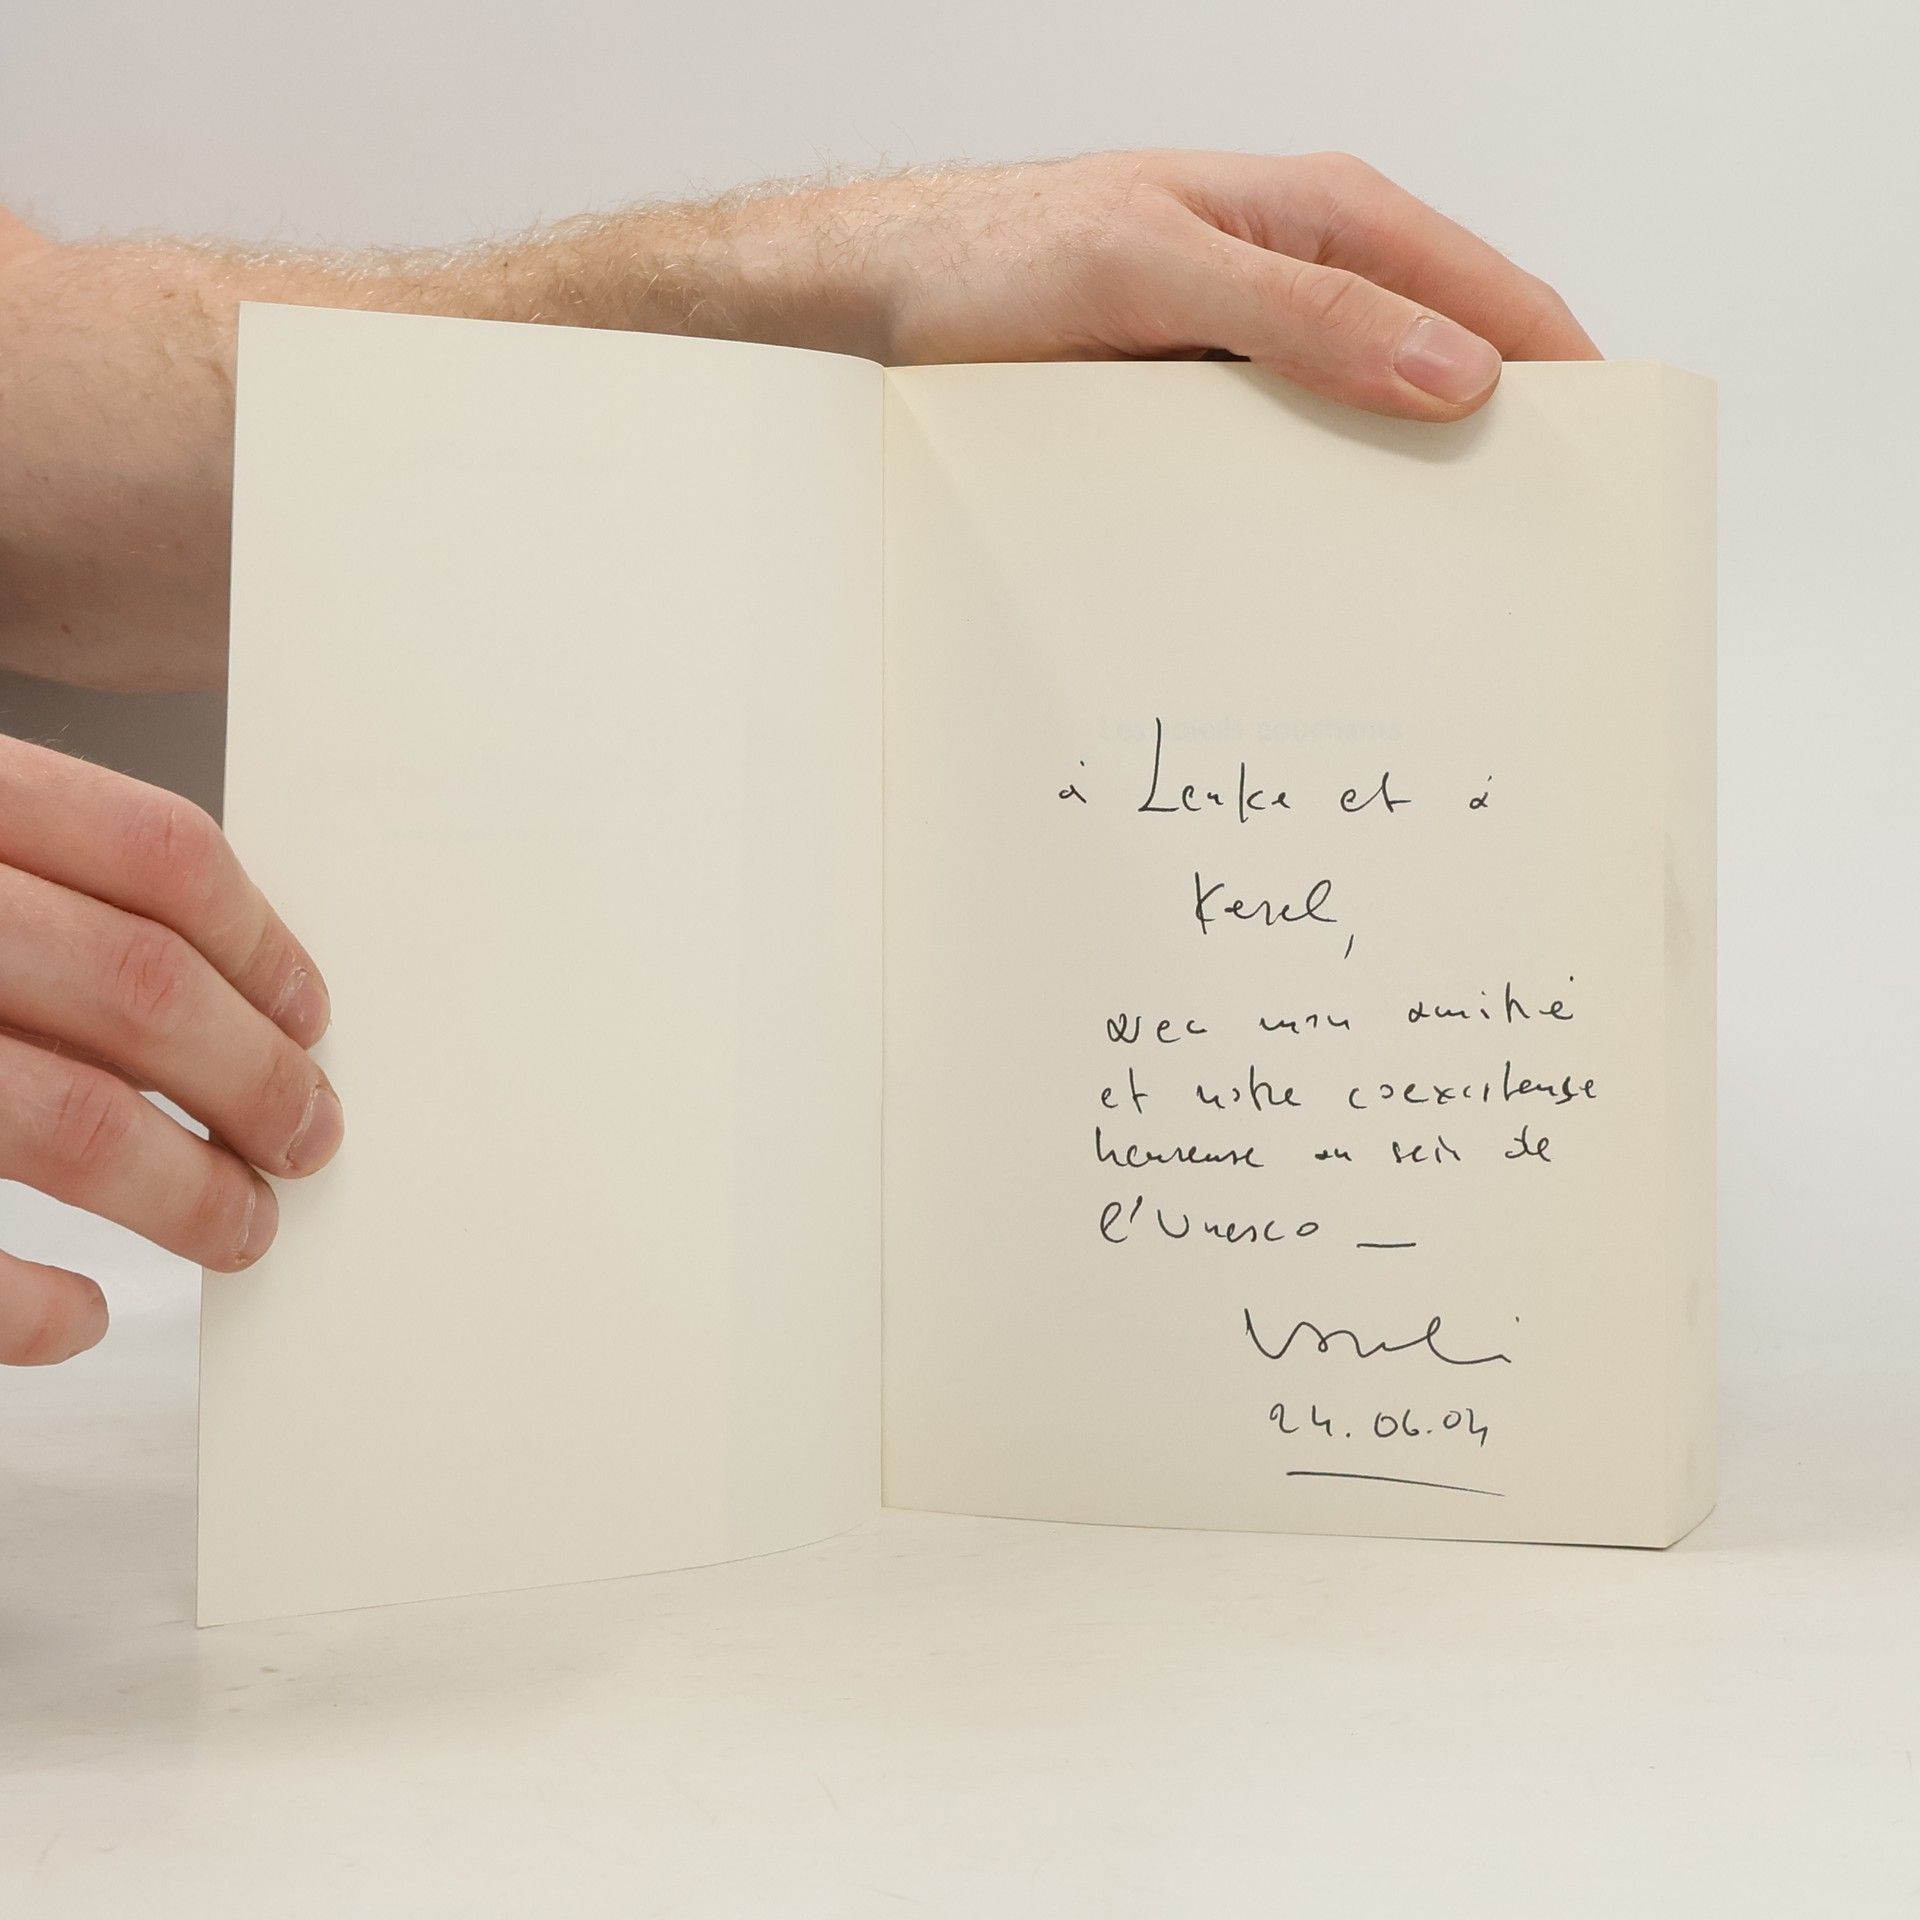 Les soleils couchants
à Lenka et à
Karel,
avec mon amitié
et notre coexistense
heureuse au sein de
l'Unesco —
24.06.04